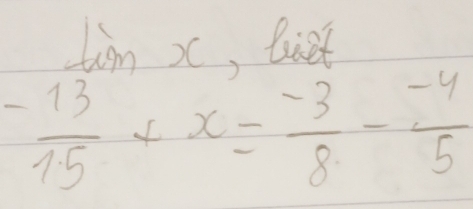 tìm x, biết
-13/15 + x = -3/8 - -4/5